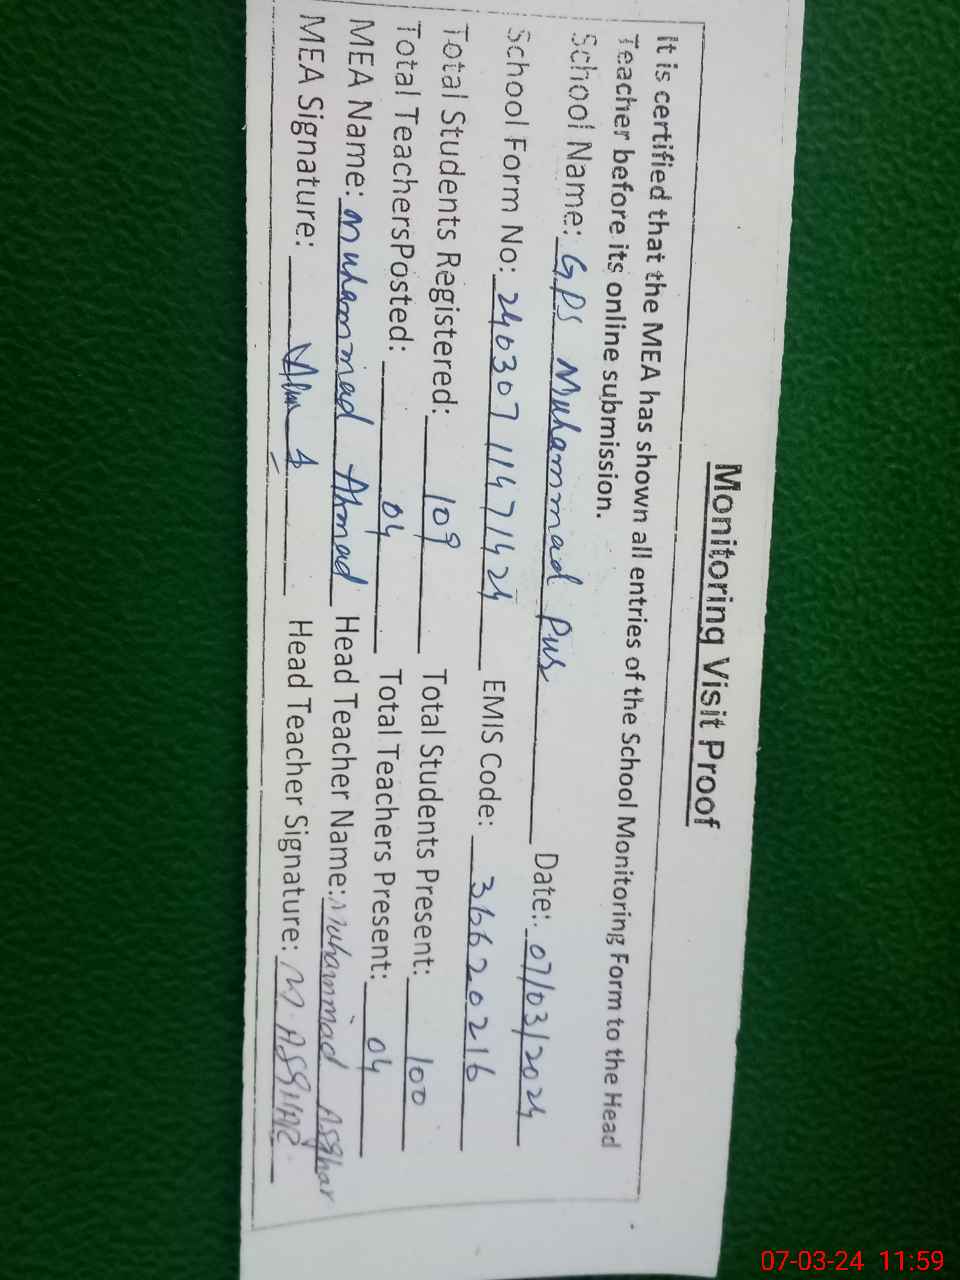 Monitoring Visit Proof
It is certified that the MEA has shown all entries of the School Monitoring Form to the Head
Teacher before its online submission.
School Name: GPS Muhammad Pur Date: 07/03/2024
School Form No: 24030711471424 EMIS Code: 36620216
Total Students Registered: 109 Total Students Present: 100
Total TeachersPosted: 04 Total Teachers Present: 04
MEA Name: Muhammad Ahmad Head Teacher Name: Muhammad Asghar
MEA Signature: Head Teacher Signature: M. ASGHAR
07-03-24 11:59